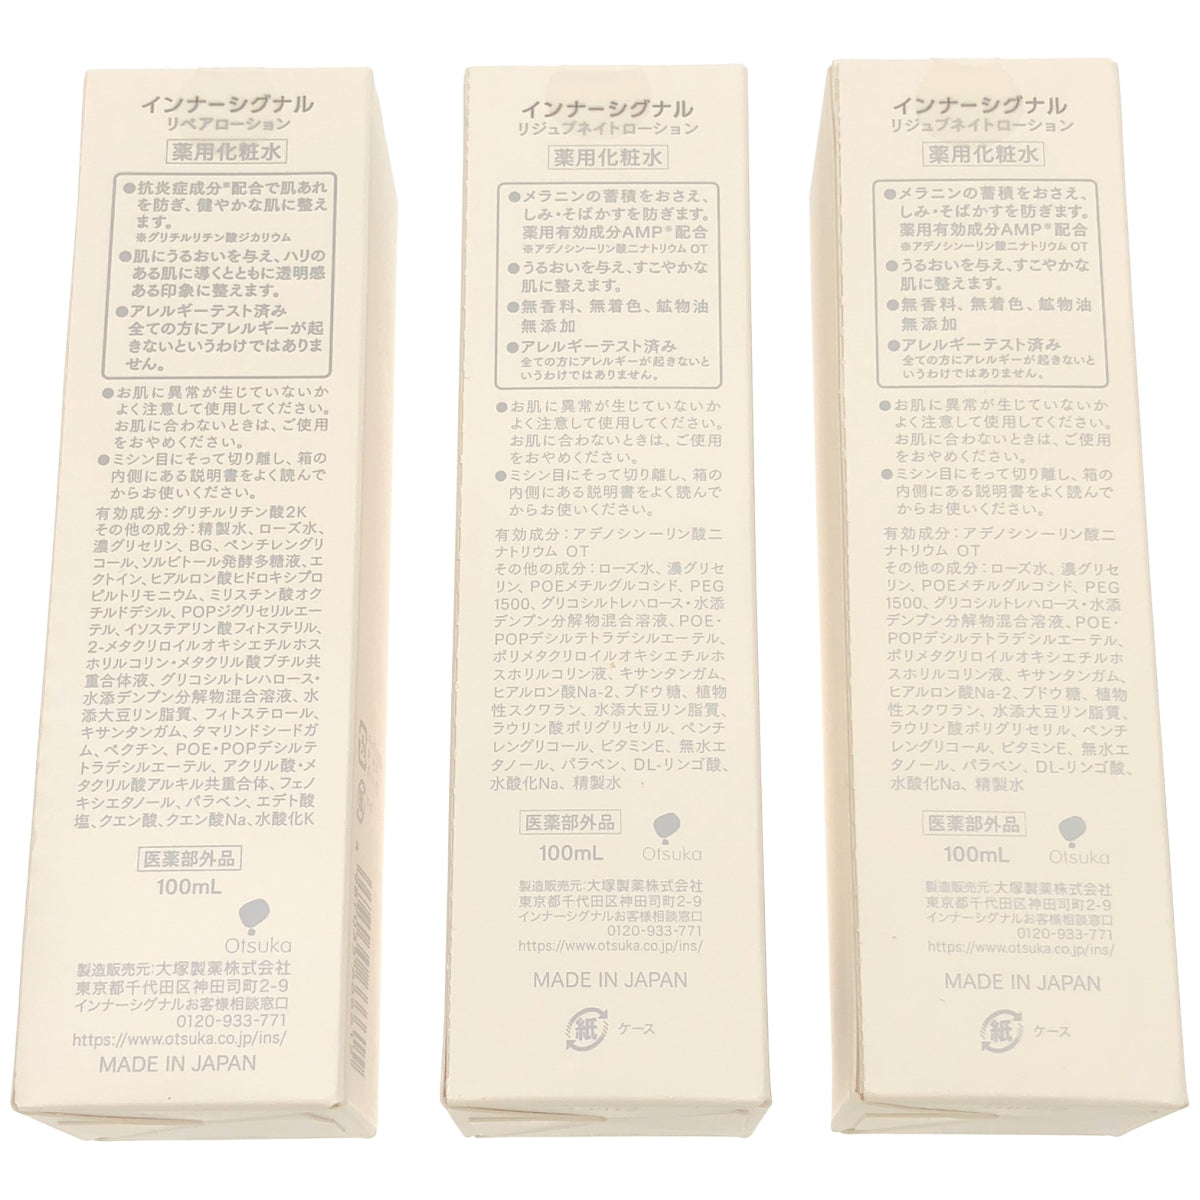 インナーシグナル
リペアローション
薬用化粧水
●抗炎症成分※配合で肌あれ
を防ぎ、健やかな肌に整え
ます。
※グリチルリチン酸ジカリウム
●肌にうるおいを与え、ハリの
ある肌に導くとともに透明感
ある印象に整えます。
●アレルギーテスト済み
全ての方にアレルギーが起
きないというわけではありま
せん。
●お肌に異常が生じていないか
よく注意して使用してください。
お肌に合わないときは、ご使用
をおやめください。
●ミシン目にそって切り離し、箱の
内側にある説明書をよく読んで
からお使いください。
有効成分:グリチルリチン酸2K
その他の成分:精製水、ローズ水、
濃グリセリン、BG、ペンチレングリ
コール、ソルビトール発酵多糖液、エ
クトイン、ヒアルロン酸ヒドロキシプロ
ピルトリモニウム、ミリスチン酸オク
チルドデシル、POPジグリセリルエー
テル、イソステアリン酸フィトステリル、
2-メタクリロイルオキシエチルホス
ホリルコリン・メタクリル酸ブチル共
重合体液、グリコシルトレハロース・
水添デンプン分解物混合溶液、水
添大豆リン脂質、フィトステロール、
キサンタンガム、タマリンドシードガ
ム、ペクチン、POE・POPデシルテ
トラデシルエーテル、アクリル酸・メ
タクリル酸アルキル共重合体、フェノ
キシエタノール、パラベン、エデト酸
塩、クエン酸、クエン酸Na、水酸化K
医薬部外品
100mL
Otsuka
製造販売元:大塚製薬株式会社
東京都千代田区神田司町2-9
インナーシグナルお客様相談窓口
0120-933-771
https://www.otsuka.co.jp/ins/
MADE IN JAPAN
インナーシグナル
リジュブネイトローション
薬用化粧水
●メラニンの蓄積をおさえ、
しみ・そばかすを防ぎます。
薬用有効成分AMP※配合
※アデノシン一リン酸二ナトリウム OT
●うるおいを与え、すこやかな
肌に整えます。
●無香料、無着色、鉱物油
無添加
●アレルギーテスト済み
全ての方にアレルギーが起きないと
いうわけではありません。
●お肌に異常が生じていないか
よく注意して使用してください。
お肌に合わないときは、ご使用
をおやめください。
●ミシン目にそって切り離し、箱の
内側にある説明書をよく読んで
からお使いください。
有効成分:アデノシン一リン酸二
ナトリウム OT
その他の成分:ローズ水、濃グリセ
リン、POEメチルグルコシド、PEG
1500、グリコシルトレハロース・水添
デンプン分解物混合溶液、POE・
POPデシルテトラデシルエーテル、
ポリメタクリロイルオキシエチルホ
スホリルコリン液、キサンタンガム、
ヒアルロン酸Na-2、ブドウ糖、植物
性スクワラン、水添大豆リン脂質、
ラウリン酸ポリグリセリル、ペンチ
レングリコール、ビタミンE、無水エ
タノール、パラベン、DL-リンゴ酸、
水酸化Na、精製水
医薬部外品
100mL
Otsuka
製造販売元:大塚製薬株式会社
東京都千代田区神田司町2-9
インナーシグナルお客様相談窓口
0120-933-771
https://www.otsuka.co.jp/ins/
MADE IN JAPAN
紙 ケース
インナーシグナル
リジュブネイトローション
薬用化粧水
●メラニンの蓄積をおさえ、
しみ・そばかすを防ぎます。
薬用有効成分AMP※配合
※アデノシン一リン酸二ナトリウム OT
●うるおいを与え、すこやかな
肌に整えます。
●無香料、無着色、鉱物油
無添加
●アレルギーテスト済み
全ての方にアレルギーが起きないと
いうわけではありません。
●お肌に異常が生じていないか
よく注意して使用してください。
お肌に合わないときは、ご使用
をおやめください。
●ミシン目にそって切り離し、箱の
内側にある説明書をよく読んで
からお使いください。
有効成分:アデノシン一リン酸二
ナトリウム OT
その他の成分:ローズ水、濃グリセ
リン、POEメチルグルコシド、PEG
1500、グリコシルトレハロース・水添
デンプン分解物混合溶液、POE・
POPデシルテトラデシルエーテル、
ポリメタクリロイルオキシエチルホ
スホリルコリン液、キサンタンガム、
ヒアルロン酸Na-2、ブドウ糖、植物
性スクワラン、水添大豆リン脂質、
ラウリン酸ポリグリセリル、ペンチ
レングリコール、ビタミンE、無水エ
タノール、パラベン、DL-リンゴ酸、
水酸化Na、精製水
医薬部外品
100mL
Otsuka
製造販売元:大塚製薬株式会社
東京都千代田区神田司町2-9
インナーシグナルお客様相談窓口
0120-933-771
https://www.otsuka.co.jp/ins/
MADE IN JAPAN
紙 ケース